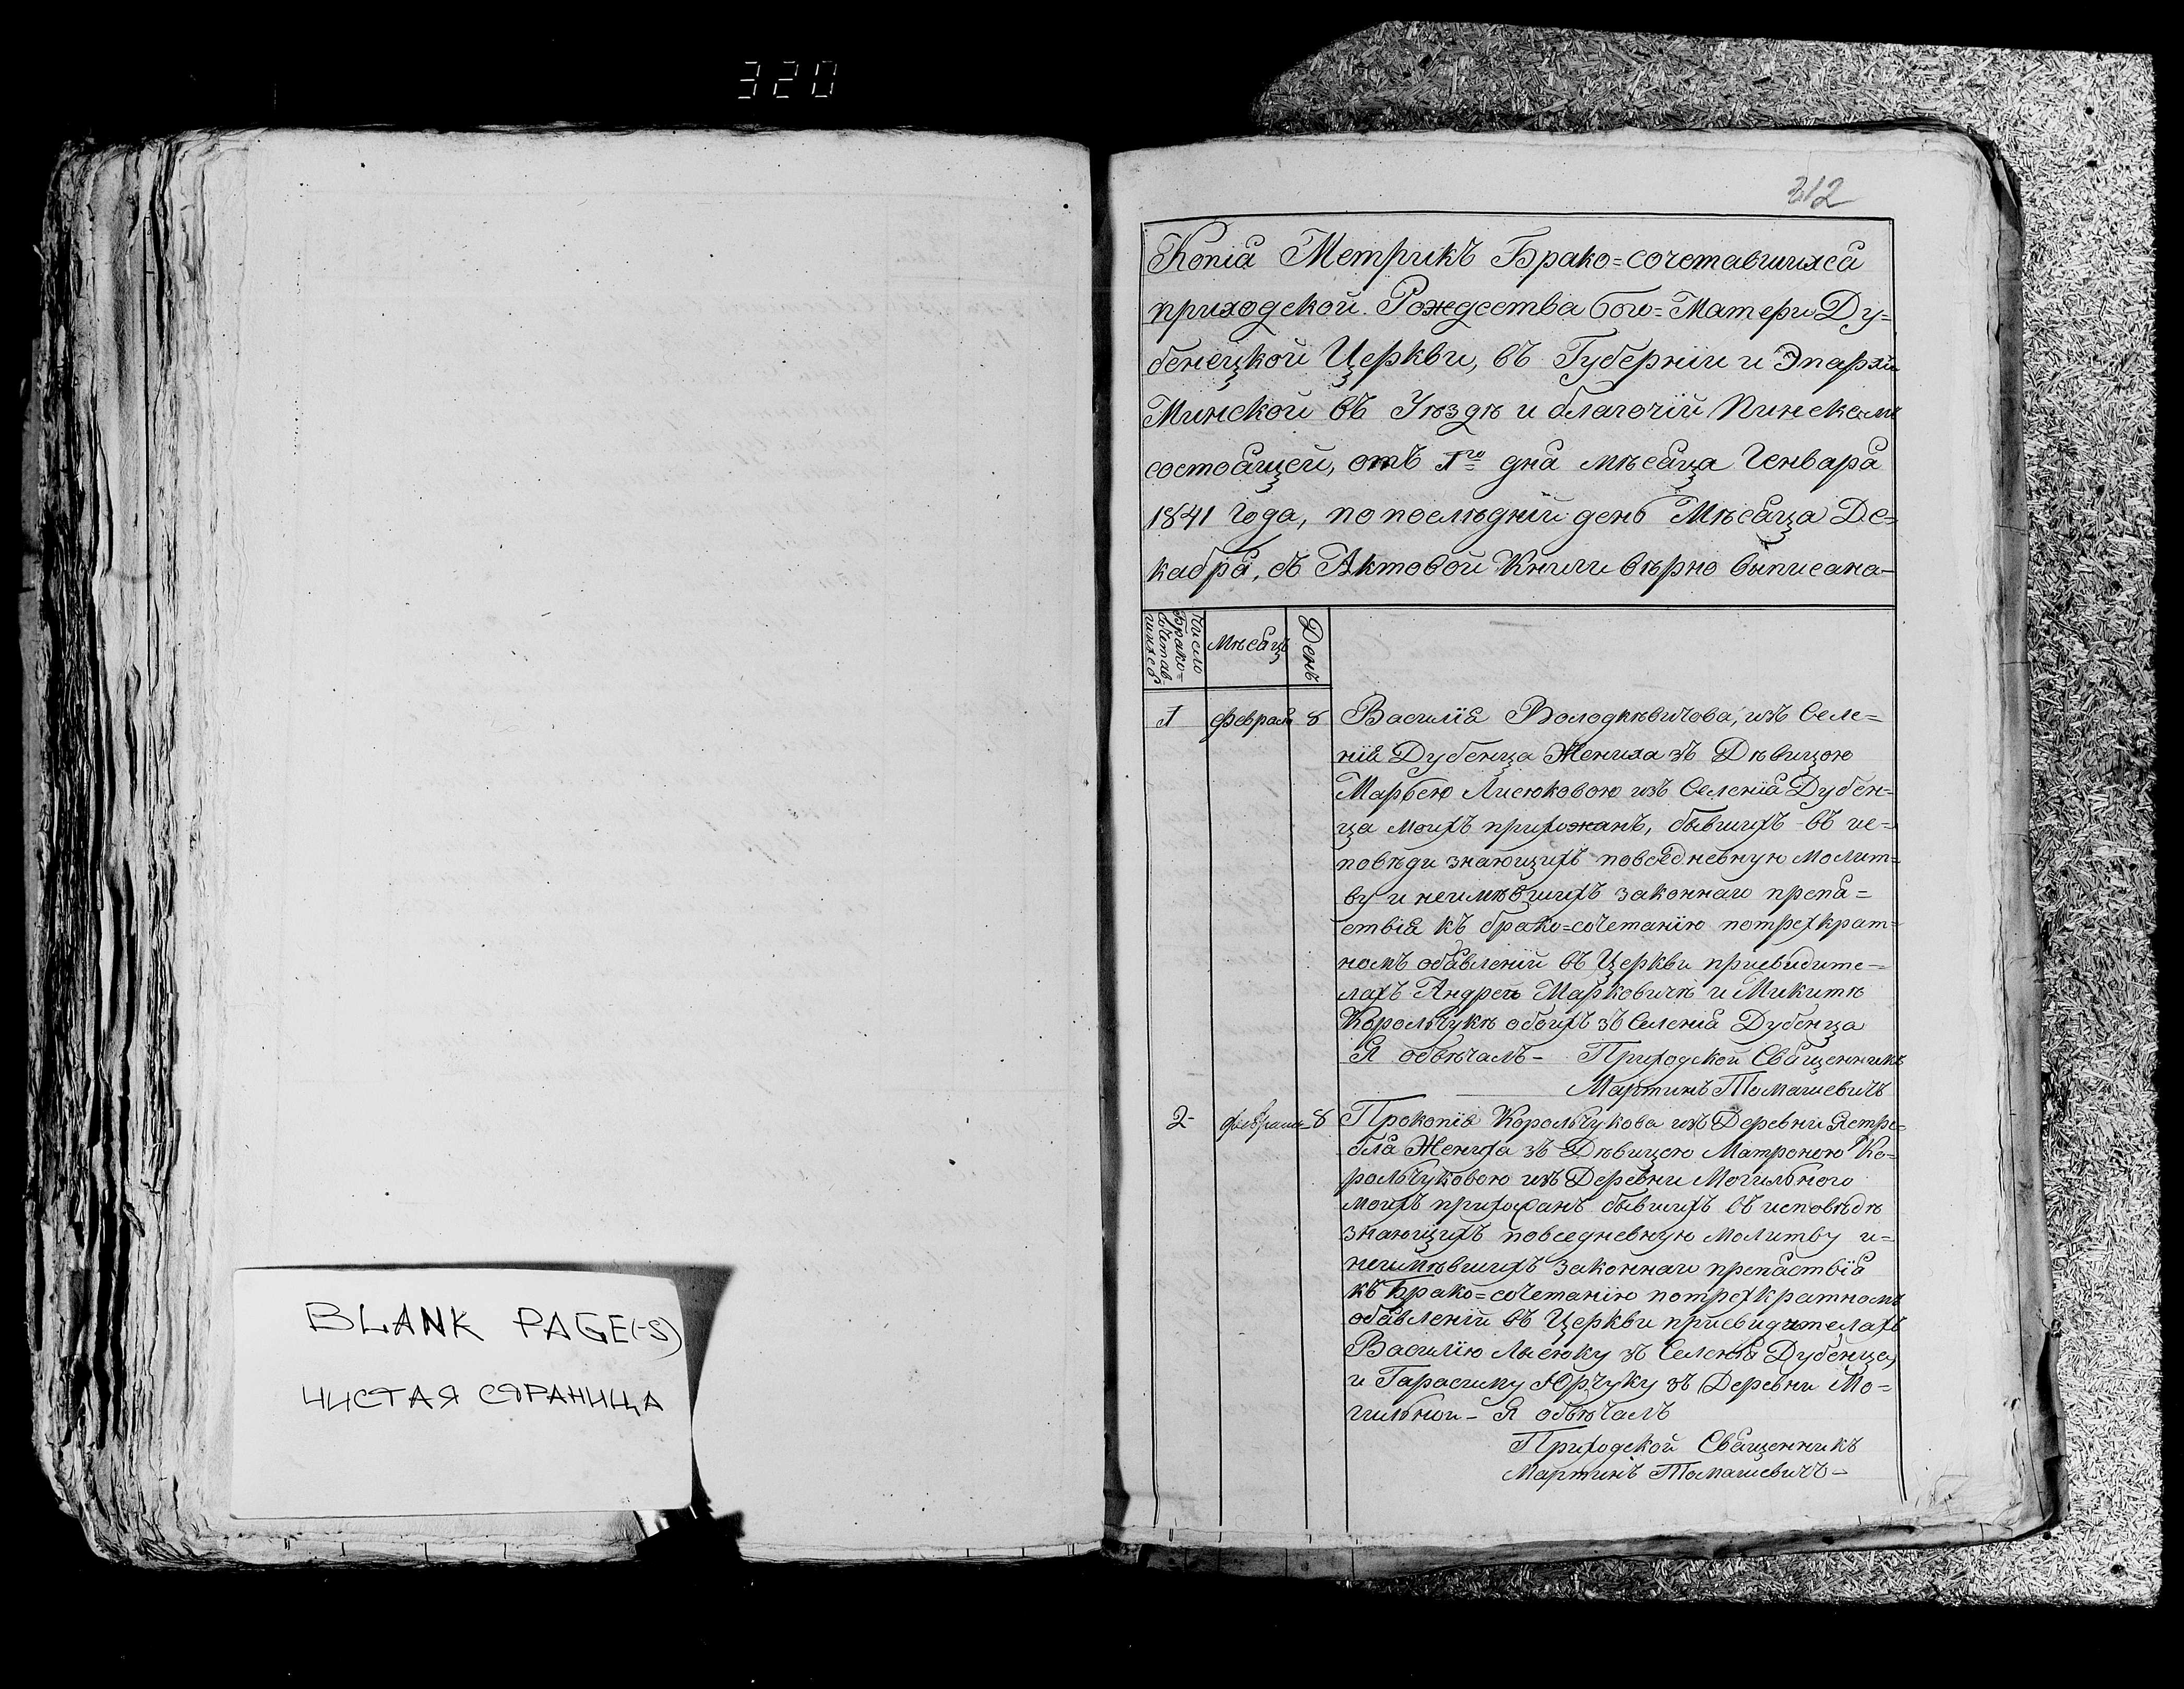 320
BLANK PAGE(-S)
ЧИСТАЯ СТРАНИЦА
212
Копія Метрикъ Брако=сочетавшихся
приходской Рождества Бого=Матери Ду=
бенецкой Церкви, въ Губерніи и Эпархіи
Минской въ Уѣздѣ и благочіи Пинскомъ
состоящей, отъ 1го дня мѣсяца Генваря
1841 года, по послѣдній день Мѣсяца Де=
кабря, съ Актовой Книги вѣрно выписана-
Число
Брако=
сочетав-
шихся
Мѣсяцъ
День
1 февраля 8 Василія Володкѣвичова, изъ Селе=
нія Дубенца Жениха зъ Дѣвицою
Марьею Лисюковою изъ Селенія Дубен=
ца моихъ прихожанъ, бывшихъ въ ис=
повѣди знающихъ повседневную молит=
ву и неимѣвшихъ законнаго препя=
ствія къ брако=сочетанію потрехкрат=
номъ обявленіи въ Церкви присвидите=
ляхъ Андрею Марковичѣ и Микитѣ
Корольчукѣ обоихъ зъ Селенія Дубенца
Я обвѣчалъ- Приходской Священникъ
Мартинъ Томашевичъ
2- февраля 8 Прокопія Корольчукова изъ Деревни Ястре=
бля Жениха зъ Дѣвицею Матроною Ко=
рольчуковою изъ Деревни Могильного
моихъ прихожанъ бывшихъ въ исповѣдѣ
знающихъ повседневную молитву и=
неимѣвшихъ законнаго препяствія
къ Брако=сочетанію потрехкратномъ
обявленіи въ Церкви присвидителяхъ
Василію Лысюку зъ Селенія Дубенца
и Гарасиму Юрчуку зъ Деревни Мо=
гильной- Я обвѣчалъ
Приходской Священникъ
Мартинъ Томашевичъ-